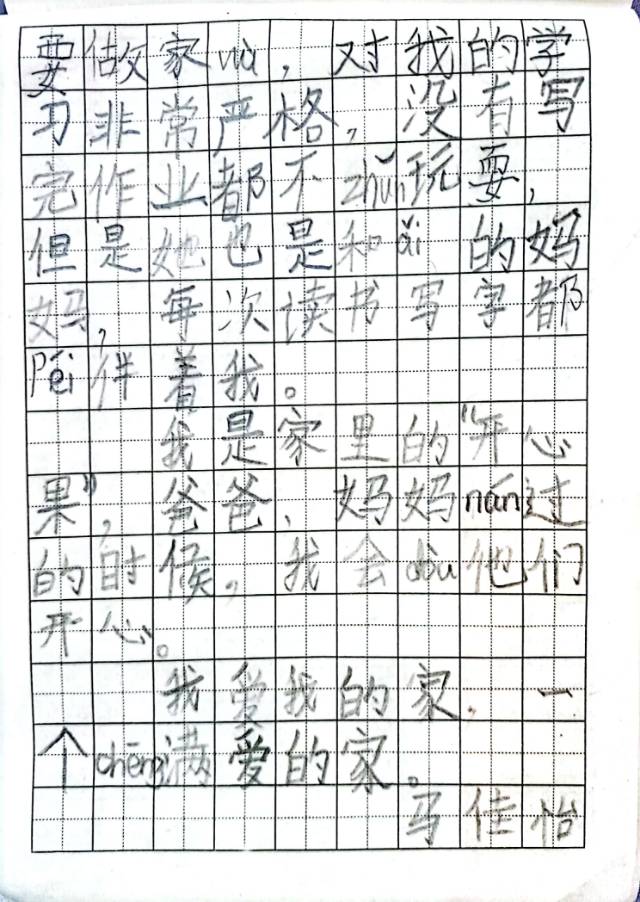 要做家wù，对我的学
习非常严格，没有写
完作业都不zhǔn玩耍，
但是她也是和ǎi的妈
妈，每次读书写字都
Péi伴着我。
我是家里的“开心
果”，爸爸、妈妈nán过
的时候，我会dòu他们
开心。
我爱我的家，一
个chōng满爱的家。
马佳怡